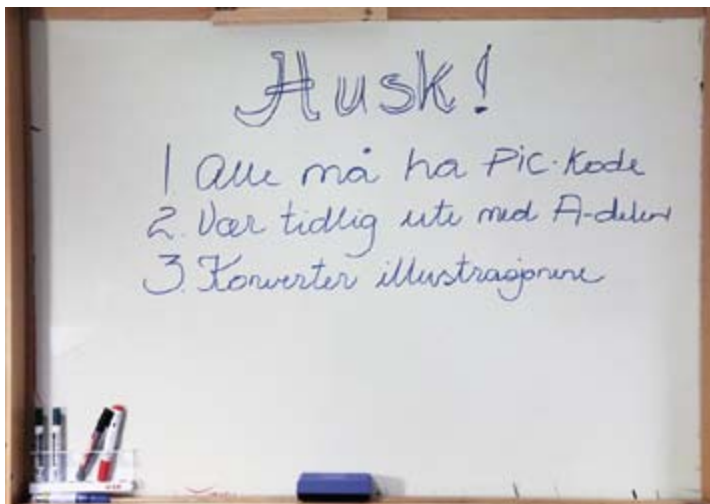 Husk!
1 Alle må ha PiC-Kode
2. Vær tidlig ute med A-delen
3. Konverter illustrasjonene